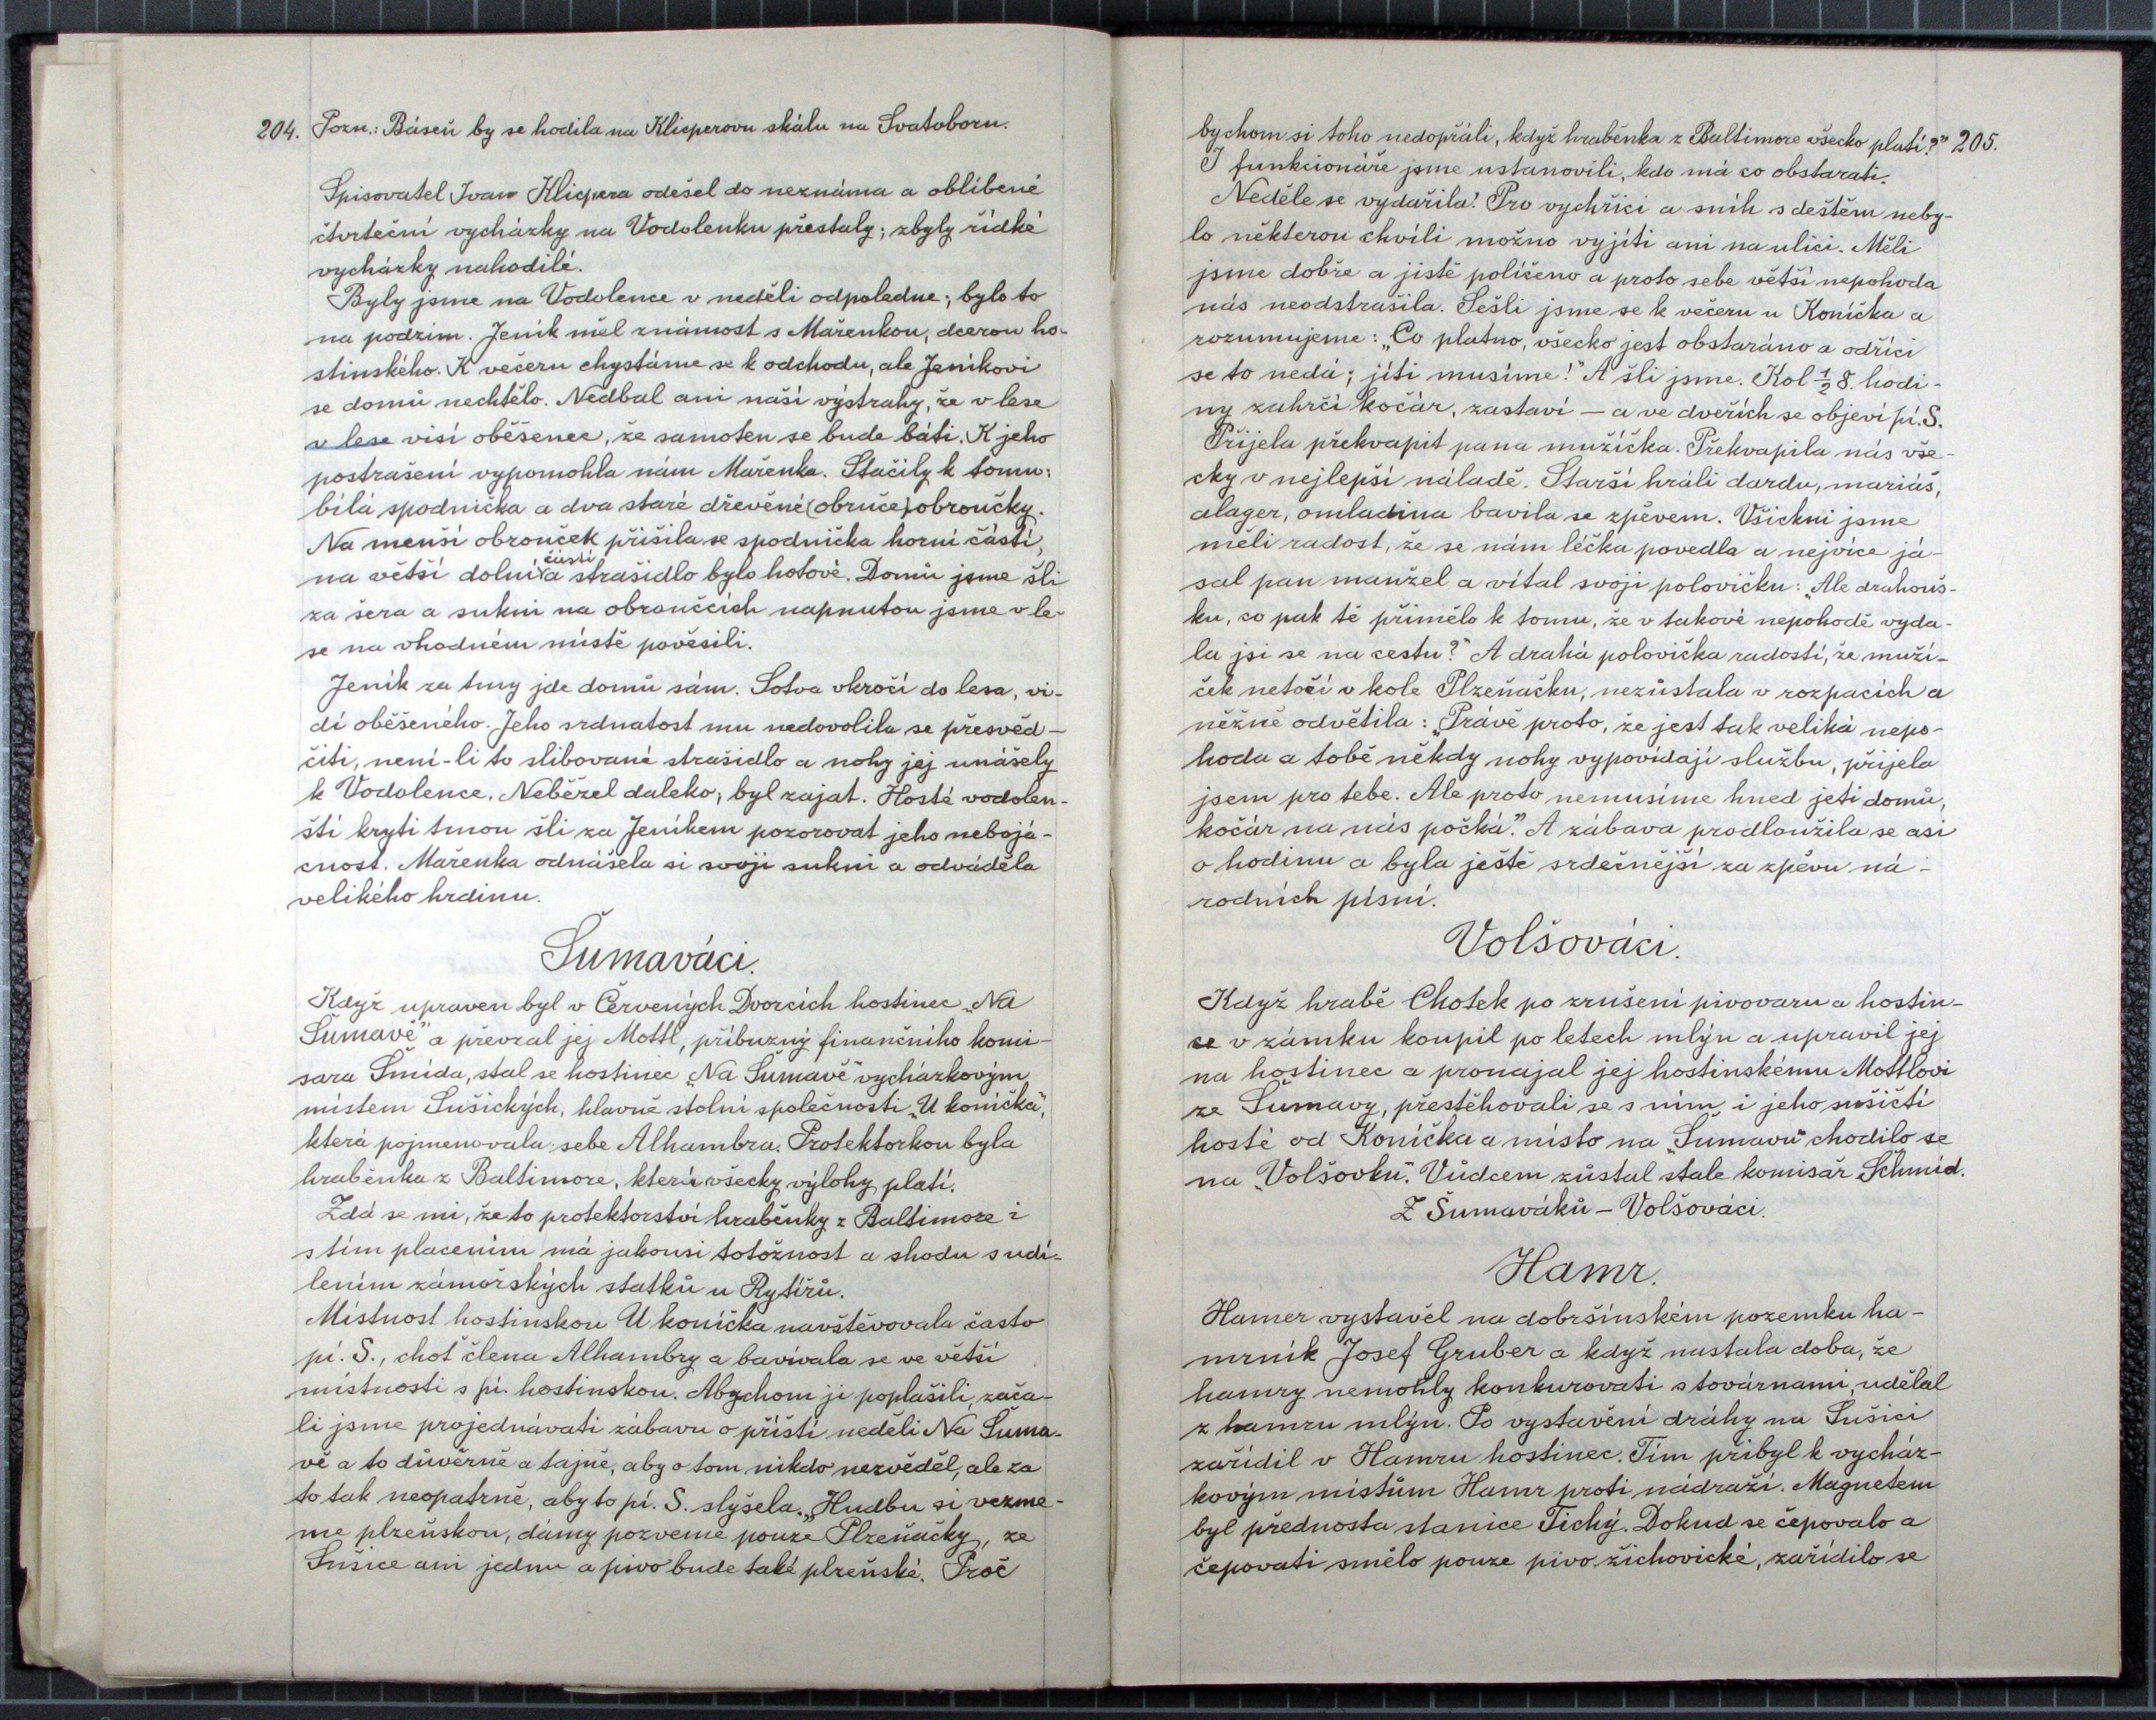 204. Pozn.: Báseň by se hodila na Klicperovu skálu na Svatoboru.
Spisovatel Ivan Klicpera odešel do neznáma a oblíbené
čtvrteční vycházky na Vodolenku přestaly; zbyly řídké
vycházky nahodilé.
Byly jsme na Vodolence v neděli odpoledne; bylo to
na podzim. Jeník měl známost s Mařenkou, dcerou ho-
stinského. K večeru chystáme se k odchodu, ale Jeníkovi
se domů nechtělo. Nedbal ani naší výstrahy, že v lese
v lese visí oběšenec, že samoten se bude báti. K jeho
postrašení vypomohla nám Mařenka. Stačily k tomu:
bílá spodnička a dva staré dřevěné (obruče) obroučky.
Na menší obrouček přišila se spodnička horní částí,
na větší dolní částí a strašidlo bylo hotové. Domů jsme šli
za šera a sukni na obroučcích napnutou jsme v le-
se na vhodném místě pověsili.
Jeník za tmy jde domů sám. Sotva vkročí do lesa, vi-
dí oběšeného. Jeho srdnatost mu nedovolila se přesvěd-
čiti, není-li to slibované strašidlo a nohy jej unášely
k Vodolence. Neběžel daleko; byl zajat. Hosté vodolen-
ští kryti tmou šli za Jeníkem pozorovat jeho nebojá-
cnost. Mařenka odnášela si svoji sukni a odváděla
velikého hrdinu.
Šumaváci.
Když upraven byl v Červených Dvorcích hostinec „Na
Šumavě" a převzal jej Mottl, příbuzný finančního komi-
sara Šmida, stal se hostinec „Na Šumavě" vycházkovým
místem Sušických, hlavně stolní společnosti „U koníčka",
která pojmenovala sebe Alhambra. Protektorkou byla
hraběnka z Baltimore, která všecky výlohy platí.
Zdá se mi, že to protektorství hraběnky z Baltimore i
s tím placením má jakousi totožnost a shodu s udí-
lením zámořských statků u Rytířů.
Místnost hostinskou U koníčka navštěvovala často
pí. S., choť člena Alhambry a bavívala se ve větší
místnosti s pí. hostinskou. Abychom ji poplašili, zača-
li jsme projednávati zábavu o příští neděli Na Šuma-
vě a to důvěrně a tajně, aby o tom nikdo nezvěděl, ale za
to tak neopatrně, aby to pí. S. slyšela. „Hudbu si vezme-
me plzeňskou, dámy pozveme pouze Plzeňačky, ze
Sušice ani jednu a pivo bude také plzeňské. Proč
bychom si toho nedopřáli, když hraběnka z Baltimore všecko platí?" 205.
I funkcionáře jsme ustanovili, kdo má co obstarati.
Neděle se vydařila! Pro vychřici a sníh s deštěm neby-
lo některou chvíli možno vyjíti ani na ulici. Měli
jsme dobře a jistě políčeno a proto sebe větší nepohoda
nás neodstrašila. Sešli jsme se k večeru u Koníčka a
rozumujeme: „Co platno, všecko jest obstaráno a odříci
se to nedá; jíti musíme!" A šli jsme. Kol ½ 8. hodi-
ny zahrčí kočár, zastaví — a ve dveřích se objeví pí. S.
Přijela překvapit pana mužíčka. Překvapila nás vše-
cky v nejlepší náladě. Starší hráli dardu, mariáš,
alager, omladina bavila se zpěvem. Všickni jsme
měli radost, že se nám léčka povedla a nejvíce já-
sal pan manžel a vítal svoji polovičku: „Ale drahouš-
ku, co pak tě přimělo k tomu, že v takové nepohodě vyda-
la jsi se na cestu?" A drahá polovička radostí, že muží-
ček netočí v kole Plzeňačku, nezůstala v rozpacích a
něžně odvětila: „Právě proto, že jest tak veliká nepo-
hoda a tobě někdy nohy vypovídají službu, přijela
jsem pro tebe. Ale proto nemusíme hned jeti domů,
kočár na nás počká." A zábava prodloužila se asi
o hodinu a byla ještě srdečnější za zpěvu ná-
rodních písní.
Volšováci.
Když hrabě Chotek po zrušení pivovaru a hostin-
ce v zámku koupil po letech mlýn a upravil jej
na hostinec a pronajal jej hostinskému Mottlovi
ze Šumavy, přestěhovali se s ním i jeho sušičtí
hosté od Koníčka a místo na „Šumavu" chodilo se
na „Volšovku". Vůdcem zůstal stale komisař Schmid.
Z Šumaváků – Volšováci.
Hamr.
Hamer vystavěl na dobršínském pozemku ha-
mrník Josef Gruber a když nastala doba, že
hamry nemohly konkurovati s továrnami, udělal
z hamru mlýn. Po vystavění dráhy na Sušici
zařídil v Hamru hostinec. Tím přibyl k vycház-
kovým místům Hamr proti nádraží. Magnetem
byl přednosta stanice Tichý. Dokud se čepovalo a
čepovati smělo pouze pivo žichovické, zařídilo se